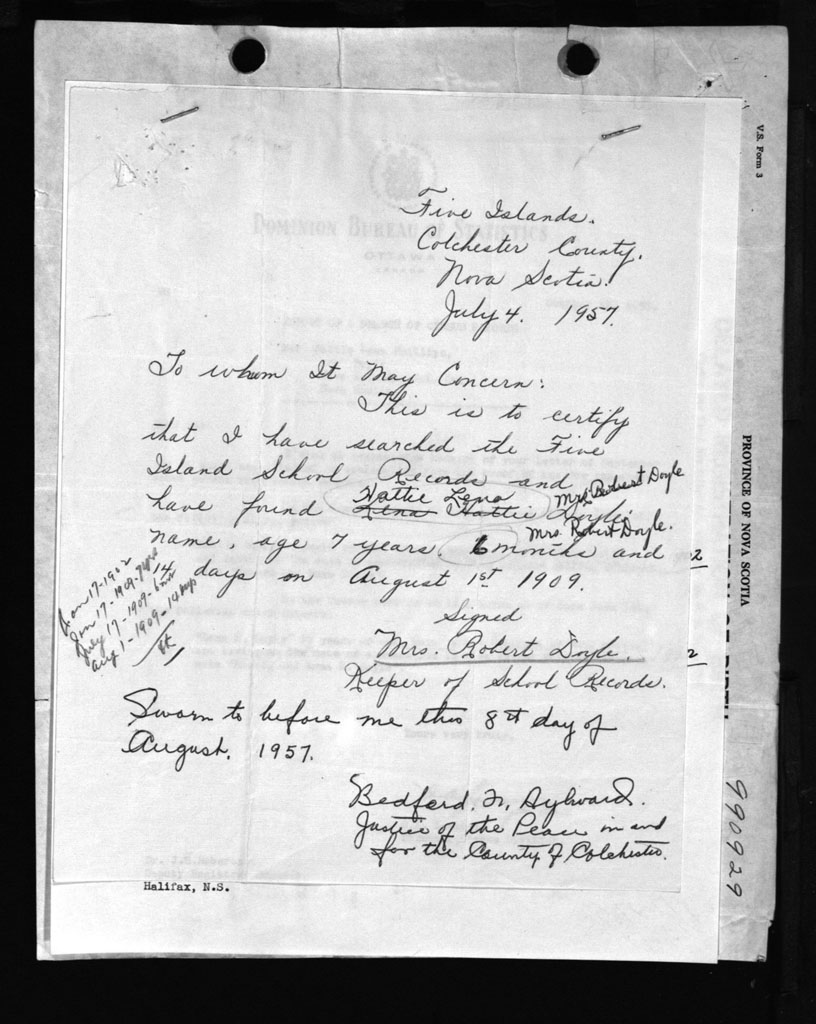 V.S. Form 3
PROVINCE OF NOVA SCOTIA
990929
DOMINION BUREAU OF STATISTICS
OTTAWA
CANADA
Five Islands.
Colchester County.
Nova Scotia.
July 4. 1957.
To whom It May Concern:
This is to certify
that I have searched the Five
Island School Records and
Hattie Lena Mrs. Robert Doyle
have found Lena Hattie Doyle
Mrs. Robert Doyle.
name, age 7 years. 6 months and
14 days on August 1st 1909.
Jan 17-1902
Jan 17-1909-7 yrs
July 17-1909-6 mo
Aug 1-1909-14 days
Signed
Mrs. Robert Doyle.
Keeper of School Records.
Sworn to before me this 8th day of
August. 1957.
Bedford. Aylward.
Justice of the Peace in and
for the County of Colchester.
Halifax, N.S.